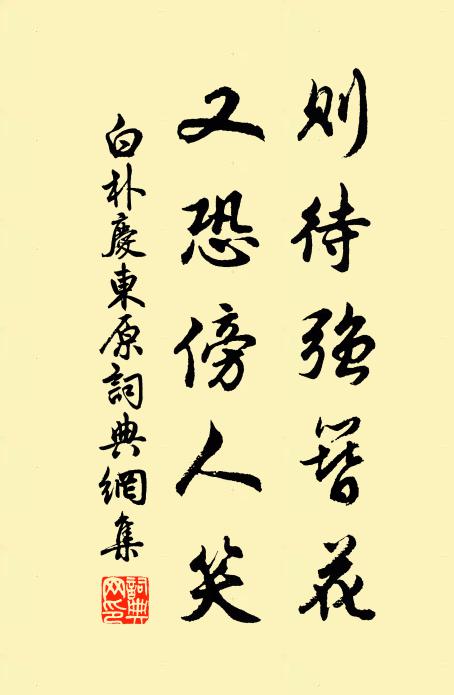 則待強簪花
又恐傍人笑
白朴慶東原詞典網集
詞典網印